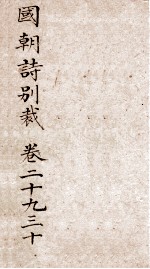 國朝詩別裁 卷二十九三十